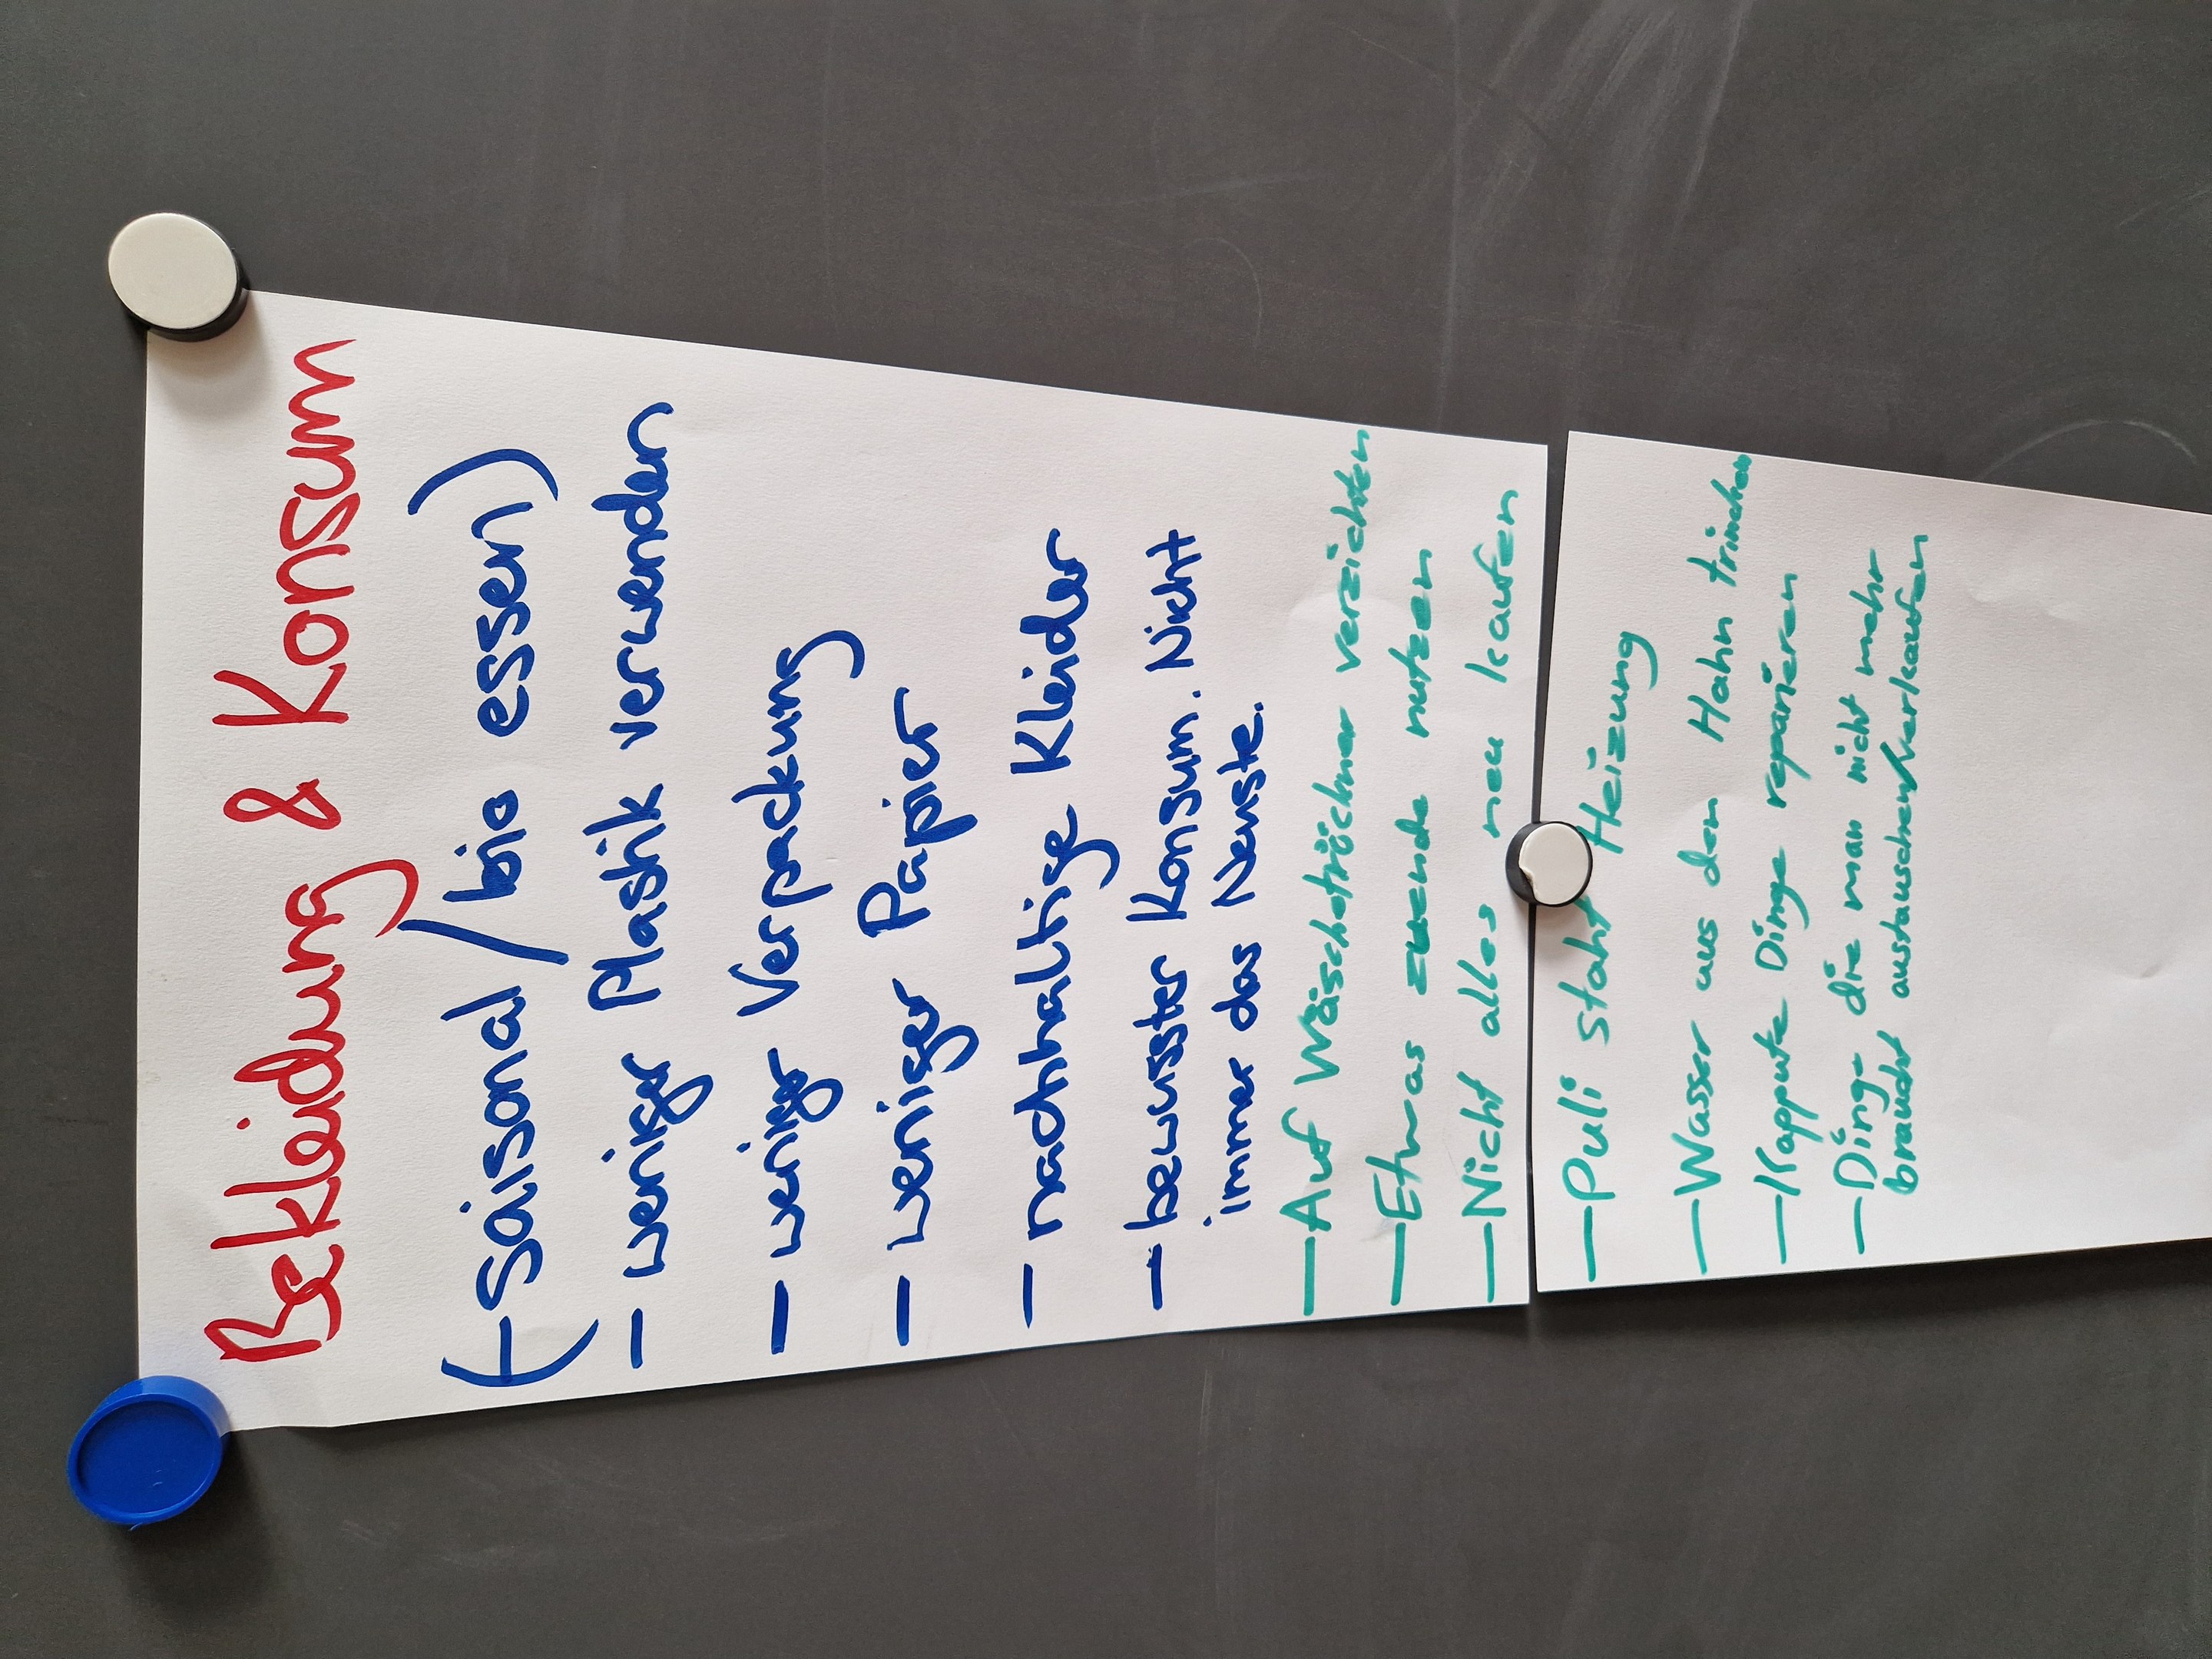 Bekleidung & Konsum
(- saisonal / bio essen)
- weniger Plastik verwenden
- weniger Verpackung
- weniger Papier
- nachhaltige Kleider
- bewusster Konsum. Nicht
immer das Neuste.
- Auf Wäschetröckner verzichten
- Etwas zuende nutzen
- Nicht alles neu kaufen
- Puli staht Heizung
- Wasser aus den Hahn trinken
- Kappute Dinge reparieren
- Dinge die man nicht mehr
braucht austauschen/verkaufen